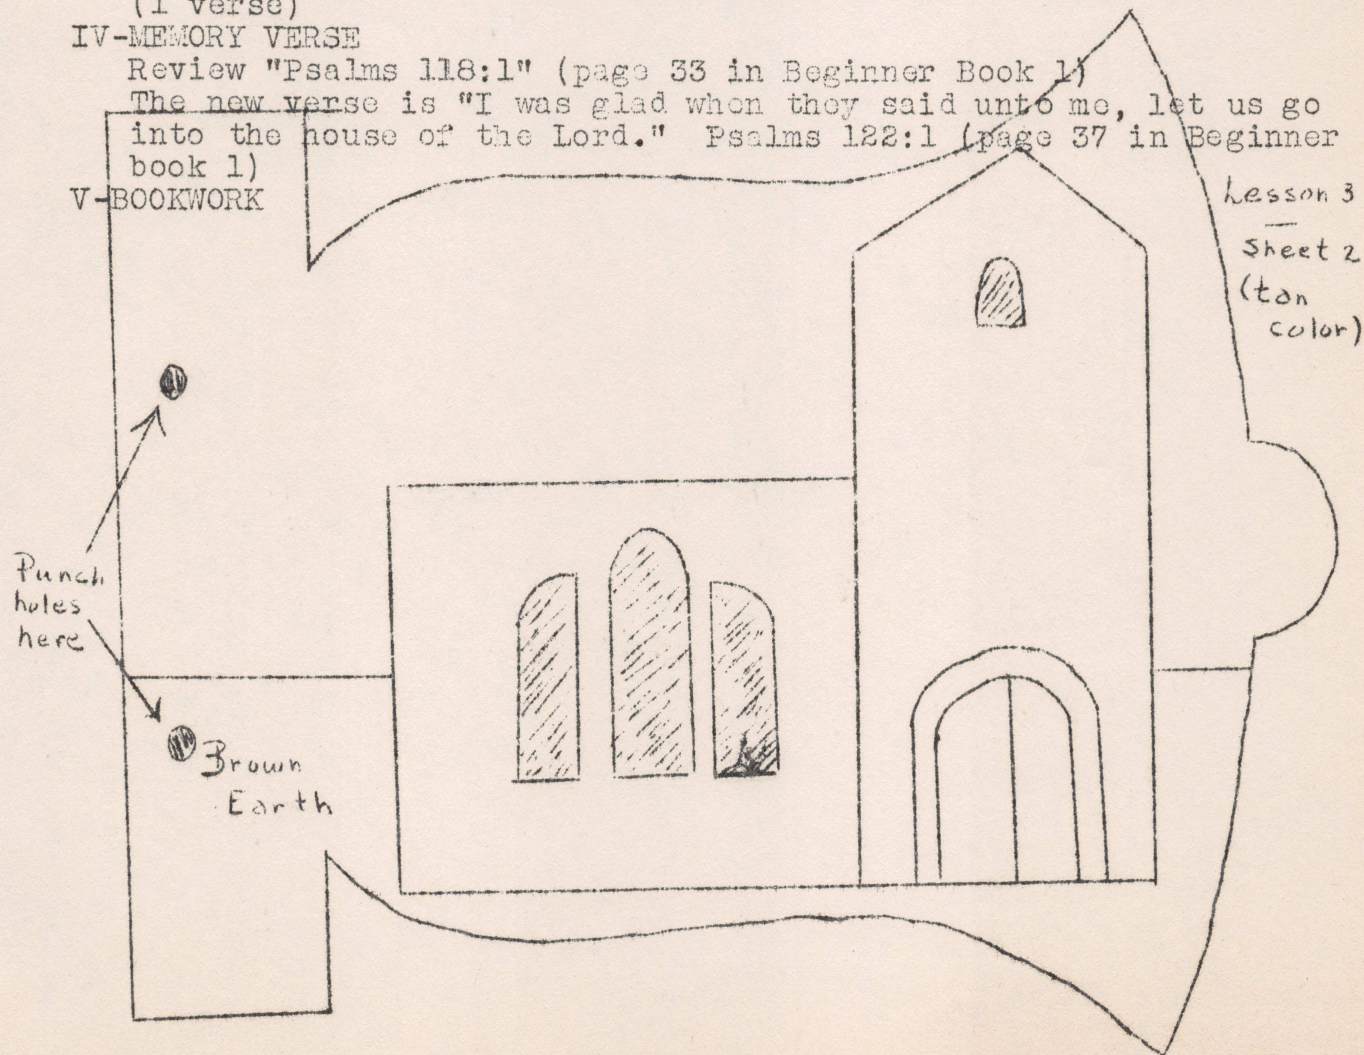 (1 verse)
IV-MEMORY VERSE
Review "Psalms 118:1" (page 33 in Beginner Book 1)
The new verse is "I was glad when they said unto me, let us go
into the house of the Lord." Psalms 122:1 (page 37 in Beginner
book 1)
V-BOOKWORK
Lesson 3
—
Sheet 2
(tan
color)
Punch
holes
here
Brown
Earth